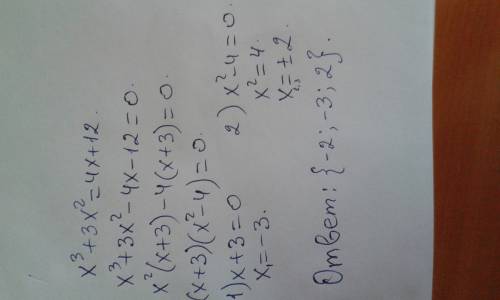 x³+3x²=4x+12.
x³+3x²-4x-12=0.
x²(x+3)-4(x+3)=0.
(x+3)(x²-4)=0.
1) x+3=0
x₁=-3.
2) x²-4=0.
x²=4.
x₂,₃=±2.
Ответ: {-2;-3;2}.